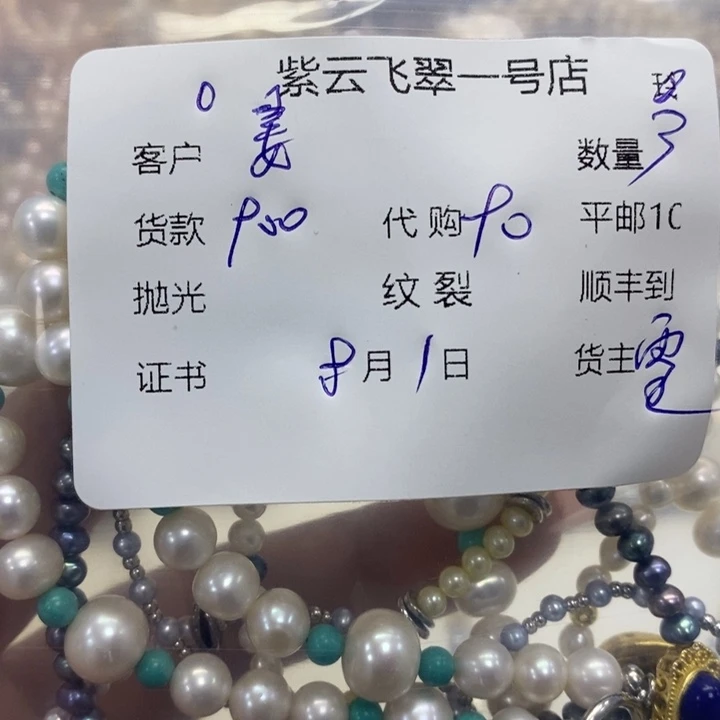 紫云飞翠一号店
0
客户 姜 数量 3
货款 900 代购 90 平邮10
抛光 纹裂 顺丰到
证书 8月1日 货主